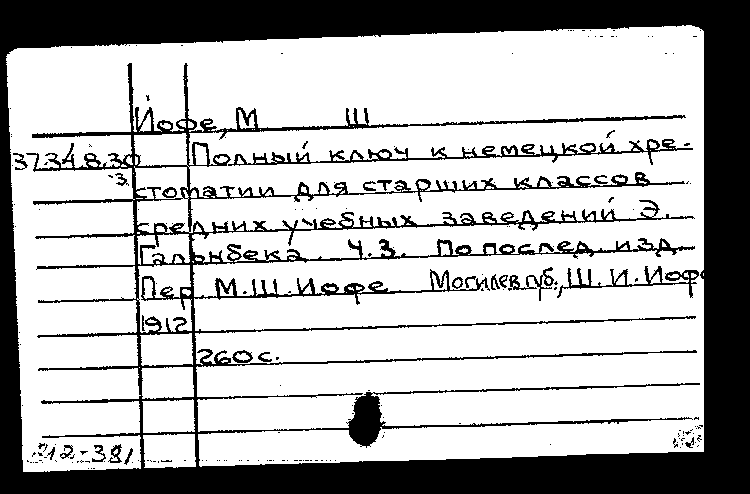 Йофе, М Ш
37.34.8.30 Полный ключ к немецкой хре-
3.
стоматии для старших классов
средних учебных заведений Э.
Гальнбека. Ч.3. По послед. изд
Пер М.Ш.Иофе Могилев губ., Ш.И.Иофе
1912.
260 с.
212-381